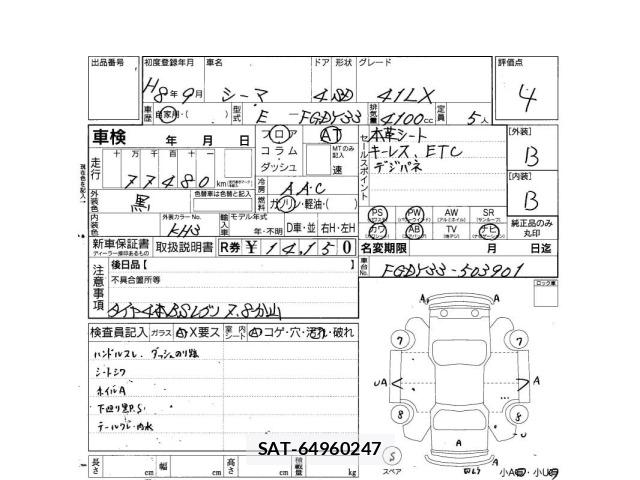 出品番号 初度登録年月 車名 ドア 形状 グレード 評価点
H8年9月 シーマ 4 SD 41LX 4
車歴 自家用・( ) 型式 E-FGDY33 排気量 4100cc 定員 5人
車検 年 月 日 フロア AT 本革シート 【外装】
コラム MTのみ記入 キーレス、ETC B
ダッシュ 速 デジパネ
走行 十 万 千 百 十 一
77480 km 冷房 AAC 【内装】
外装色 黒 色替車は色替と記入 燃料 ガソリン・軽油・( ) B
セールスポイント
PS PW AW SR
カワ AB TV ナビ 純正品のみ丸印
内装色 外装カラーNo. KH3 輸入車 モデル年式 年・不明 D車・並 右H・左H
新車保証書 取扱説明書 R券 ¥ 14,150 名変期限 月 日迄
ディーラー捺印あるもの
注意事項 後日品【 】 車台No. FGDY33-503901
不具合箇所等 ロック車
タイヤ4本BSレグノ 7.8分山
検査員記入 ガラス A X要ス 室内シート A コゲ・穴・汚れ・破れ
ハンドルスレ、ダッシュのり跡
シートシワ
ホイルA
下廻り黒P.S.
テールワレ・内水
A A
7 7
UA A
8 8
U
A
SAT-64960247
長さ cm 幅 cm 高さ cm 積載量 kg
S スペア